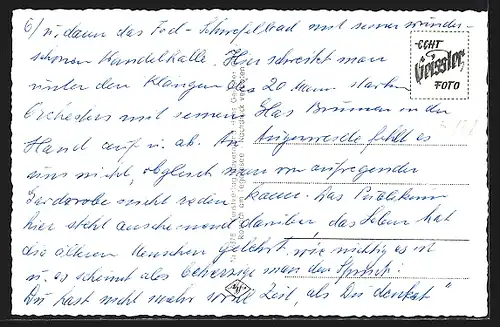 6/ u. dann das Jod-Schwefelbad mit seiner wunder-
schönen Wandelhalle. Hier schreitet man
unter den Klängen des 20 Mann starken
Orchesters mit seinem Glas Brunnen in der
Hand auf u. ab. An Augenweide fehlt es
uns nicht, obgleich man von aufregender
Garderobe nicht reden kann. Das Publikum
hier steht anscheinend darüber, das Leben hat
die älteren Menschen gelehrt, wie nichtig es ist
u. es scheint als beherzige man den Spruch:
Du hast nicht mehr Zeit, als Du denkst"
ECHT
Geissler
FOTO